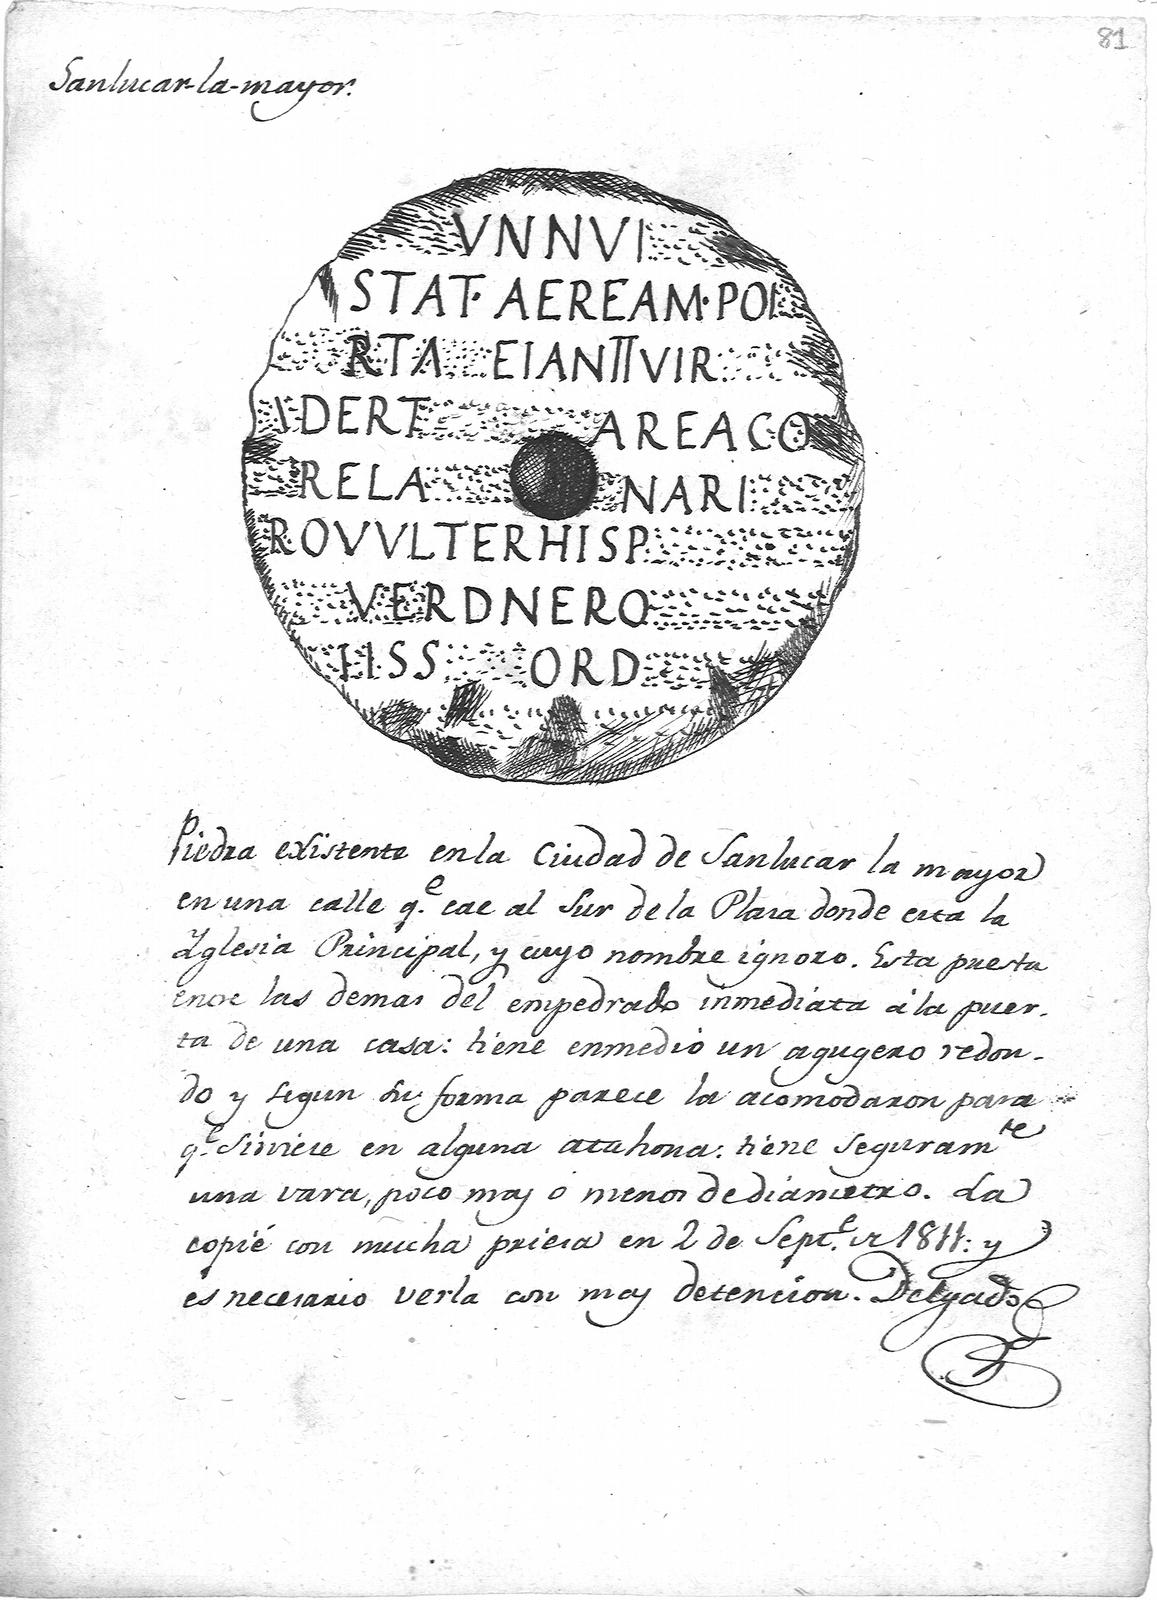 81
Sanlucar-la-mayor.
VNNVI
STAT· AEREAM·POI
RTA EIANIIVIR
IDERT AREACO
RELA NARI
ROVVLTERHISP
VERDNERO
IISS ORD
Piedra existente en la Ciudad de Sanlucar la mayor
en una calle q.e cae al Sur de la Plaza donde esta la
Yglesia Principal, y cuyo nombre ignoro. Esta puesta
entre las demas del empedrado inmediata á la puer-
ta de una casa: tiene enmedio un agugero redon-
do y segun su forma parece la acomodaron para
q.e sirviese en alguna atahona: tiene seguram.te
una vara, poco mas o menos de diametro. La
copié con mucha priesa en 2 de Sept.e de 1811: y
es necesario verla con mas detencion. Delgado